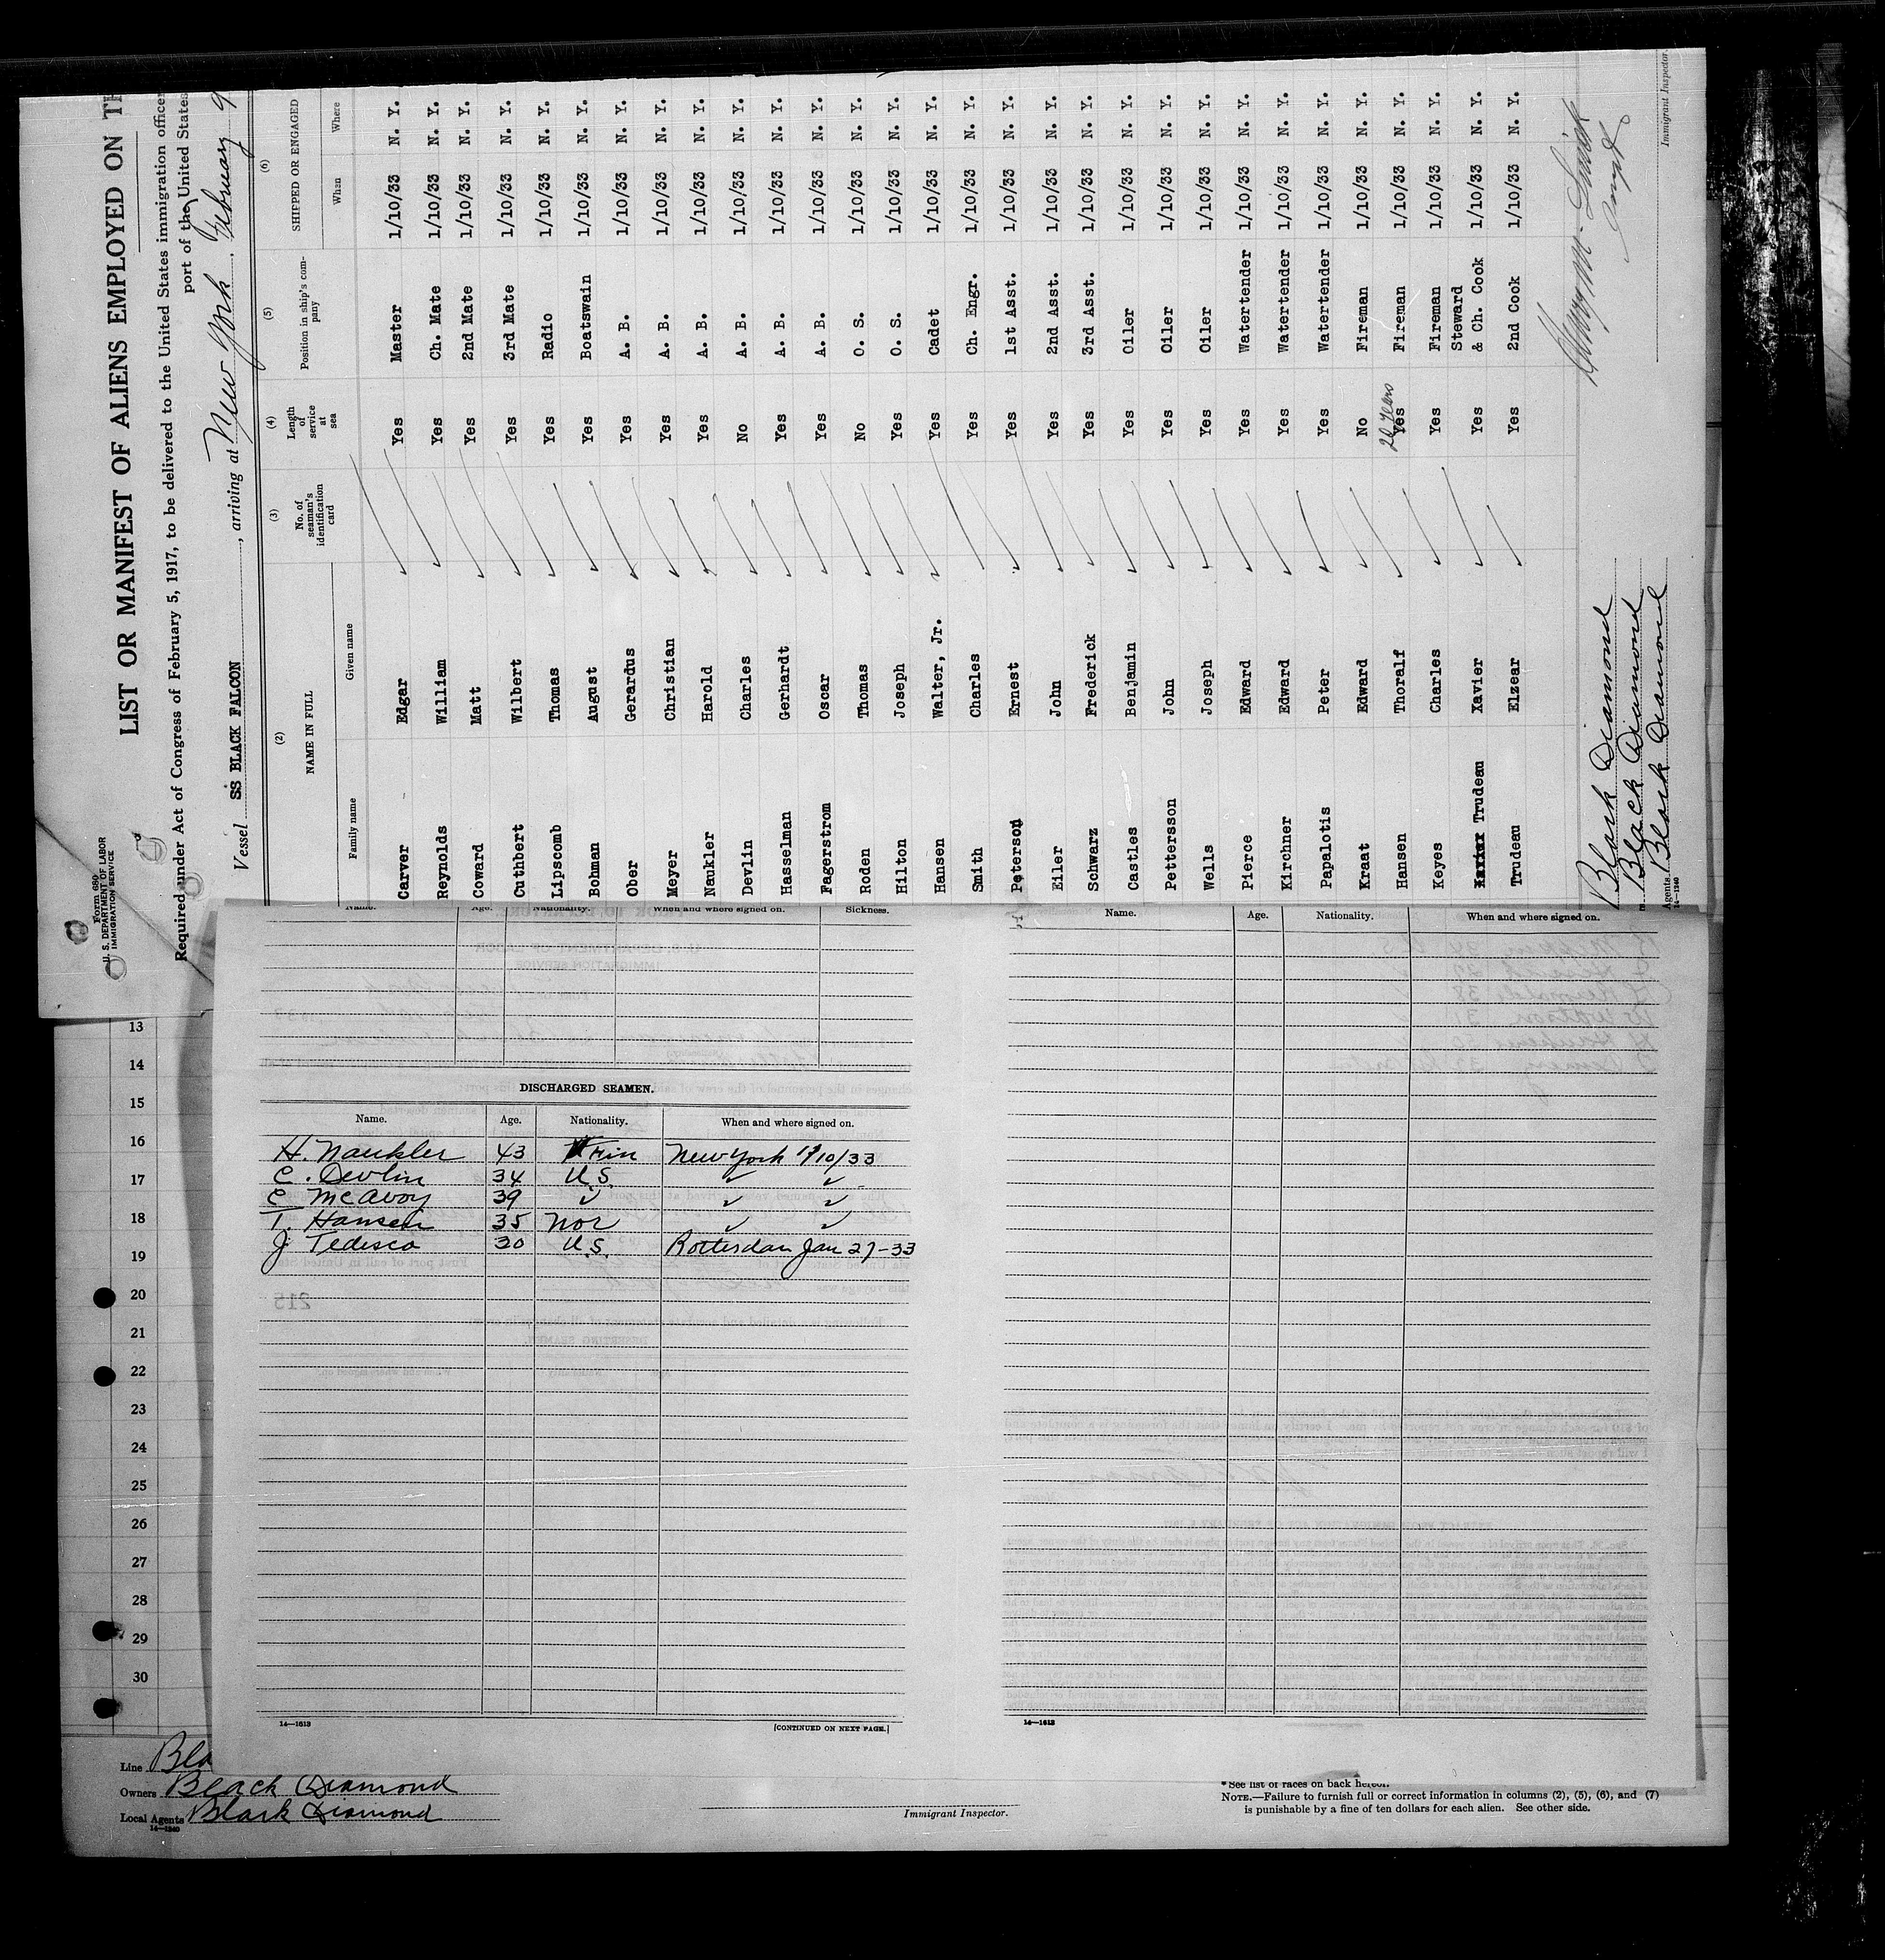 Form 680
U. S. DEPARTMENT OF LABOR
IMMIGRATION SERVICE
LIST OR MANIFEST OF ALIENS EMPLOYED ON
Required under Act of Congress of February 5, 1917, to be delivered to the United States immigration officer
port of the United States
Vessel SS BLACK FALCON, arriving at New York, February 9
(2) (3) (4) (5) (6)
NAME IN FULL No. of seaman's identification card Length of service at sea Position in ship's company SHIPPED OR ENGAGED
Family name Given name When Where
Carver Edgar Yes Master 1/10/33 N. Y.
Reynolds William Yes Ch. Mate 1/10/33 N. Y.
Coward Matt Yes 2nd Mate 1/10/33 N. Y.
Cuthbert Wilbert Yes 3rd Mate 1/10/33 N. Y.
Lipscomb Thomas Yes Radio 1/10/33 N. Y.
Bohman August Yes Boatswain 1/10/33 N. Y.
Ober Gerardus Yes A. B. 1/10/33 N. Y.
Meyer Christian Yes A. B. 1/10/33 N. Y.
Naukler Harold Yes A. B. 1/10/33 N. Y.
Devlin Charles No A. B. 1/10/33 N. Y.
Hasselman Gerhardt Yes A. B. 1/10/33 N. Y.
Fagerstrom Oscar Yes A. B. 1/10/33 N. Y.
Roden Thomas No O. S. 1/10/33 N. Y.
Hilton Joseph Yes O. S. 1/10/33 N. Y.
Hansen Walter, Jr. Yes Cadet 1/10/33 N. Y.
Smith Charles Yes Ch. Engr. 1/10/33 N. Y.
Peterson Ernest Yes 1st Asst. 1/10/33 N. Y.
Eiler John Yes 2nd Asst. 1/10/33 N. Y.
Schwarz Frederick Yes 3rd Asst. 1/10/33 N. Y.
Castles Benjamin Yes Oiler 1/10/33 N. Y.
Pettersson John Yes Oiler 1/10/33 N. Y.
Wells Joseph Yes Oiler 1/10/33 N. Y.
Pierce Edward Yes Watertender 1/10/33 N. Y.
Kirchner Edward Yes Watertender 1/10/33 N. Y.
Papalotis Peter Yes Watertender 1/10/33 N. Y.
Kraat Edward No Fireman 1/10/33 N. Y.
Hansen Thoralf 20 years Yes Fireman 1/10/33 N. Y.
Keyes Charles Yes Fireman 1/10/33 N. Y.
Trudeau Xavier Yes Steward & Ch. Cook 1/10/33 N. Y.
Trudeau Elzear Yes 2nd Cook 1/10/33 N. Y.
Black Diamond
Black Diamond
Agents Black Diamond
14-1240
Immigrant Inspector.
Name. Age. Nationality. When and where signed on. Sickness.
DISCHARGED SEAMEN.
Name. Age. Nationality. When and where signed on.
H. Naukler 43 Fin New York 1/10/33
C. Devlin 34 U.S. ✓ ✓
E. McAvoy 39 ✓ ✓ ✓
T. Hansen 35 Nor ✓ ✓
J. Tedesco 30 U.S. Rotterdam Jan 27-33
14—1613 [CONTINUED ON NEXT PAGE.]
Name. Age. Nationality. When and where signed on.
14—1613
13
14
15
16
17
18
19
20
21
22
23
24
25
26
27
28
29
30
Line Bla
Owners Black Diamond
Local Agents Black Diamond
14—1240
Immigrant Inspector.
* See list of races on back hereof.
NOTE.—Failure to furnish full or correct information in columns (2), (5), (6), and (7)
is punishable by a fine of ten dollars for each alien. See other side.